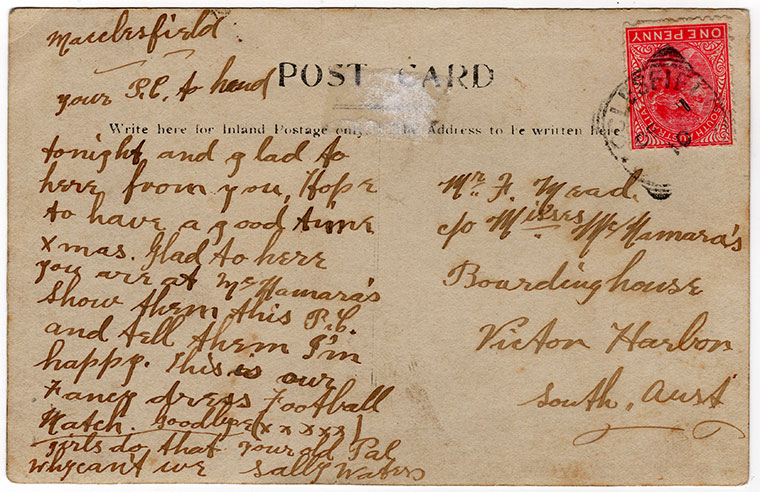 Macclesfield
your P.C. to hand
tonight and glad to
here from you, Hope
to have a good time
xmas. Glad to here
you are at McNamara's
Show them this P.C.
and tell them I'm
happy. This is our
Fancy dress Football
Match. Goodbye (x x x x x)
girls do that your old Pal
why can't we Sally Waters
POST CARD
Write here for Inland Postage only The Address to be written here
Mr F. Mead.
c/o Misses McNamara's
Boardinghouse
Victor Harbor
South, Aust
ONE PENNY
SOUTH AUSTRALIA